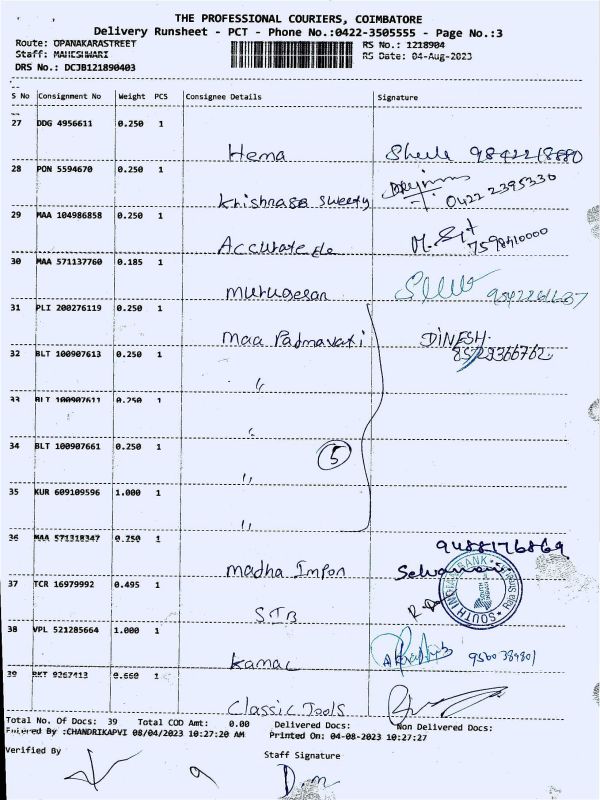 THE PROFESSIONAL COURIERS, COIMBATORE
Delivery Runsheet - PCT - Phone No.:0422-3505555 - Page No.:3
Route: OPANAKARASTREET RS No.: 1218904
Staff: MAHESHWARI RS Date: 04-Aug-2023
DRS No.: DCJB121890403
S No Consignment No Weight PCS Consignee Details Signature
27 DDG 4956611 0.250 1
Hema 9842218880
28 PON 5594670 0.250 1
Krishnasa Sweety 0422 2395330
29 MAA 104986858 0.250 1
Accurate 7598410000
30 MAA 571137760 0.185 1
Murugesan
31 PLI 200276119 0.250 1
Maa Padmavati DINESH
32 BLT 100907613 0.250 1
"
33 BLT 100907611 0.250 1
"
34 BLT 100907661 0.250 1
5
"
35 KUR 609109596 1.000 1
"
36 MAA 571318347 0.250 1
9488176869
Madha Impon
37 TCR 16979992 0.495 1
SOUTH INDIAN BANK
STB
38 VPL 521285664 1.000 1
Kamal
39 RKT 9267413 0.660 1
Classic Tools
Total No. Of Docs: 39 Total COD Amt: 0.00 Delivered Docs: Non Delivered Docs:
Entered By :CHANDRIKAPVI 08/04/2023 10:27:20 AM Printed On: 04-08-2023 10:27:27
Verified By Staff Signature